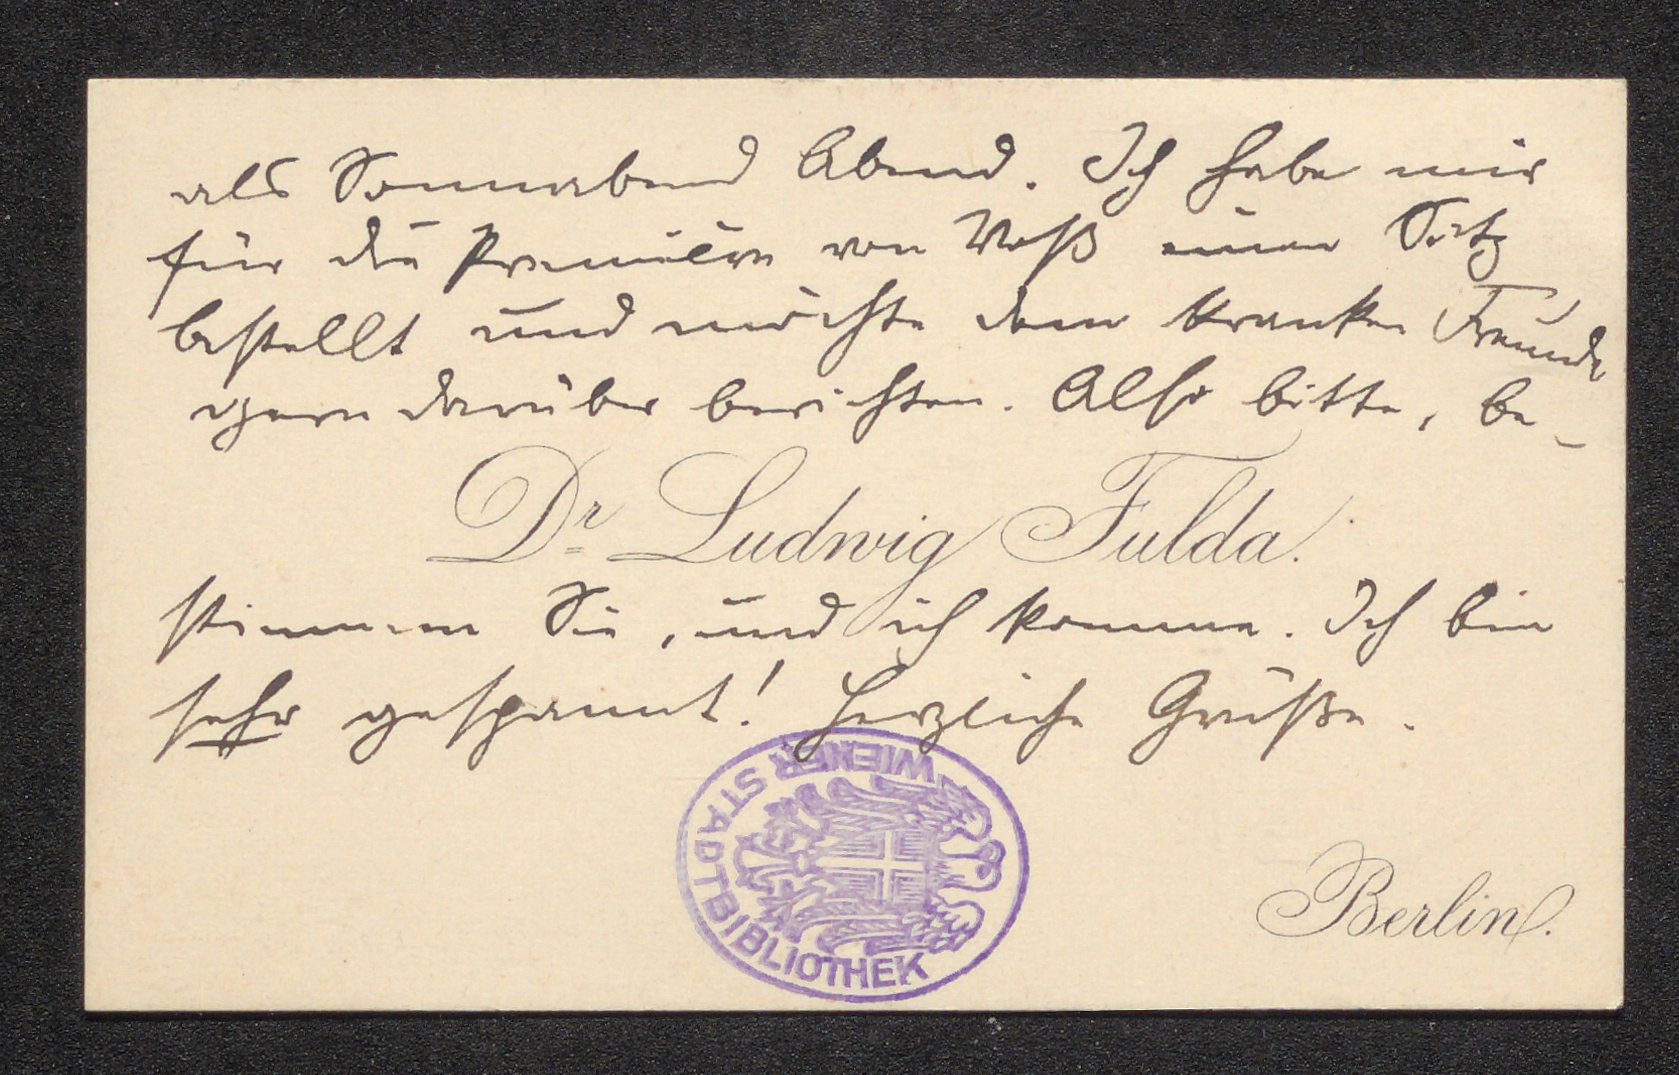 als Sonnabend Abend. Ich habe mir
für die Première von Voß einen Sitz
bestellt und möchte dem kranken Freunde
gern darüber berichten. Also bitte, be-
Dr. Ludwig Fulda.
stimmen Sie, und ich komme. Ich bin
sehr gespannt! Herzliche Grüße.
WIENER STADTBIBLIOTHEK
Berlin.